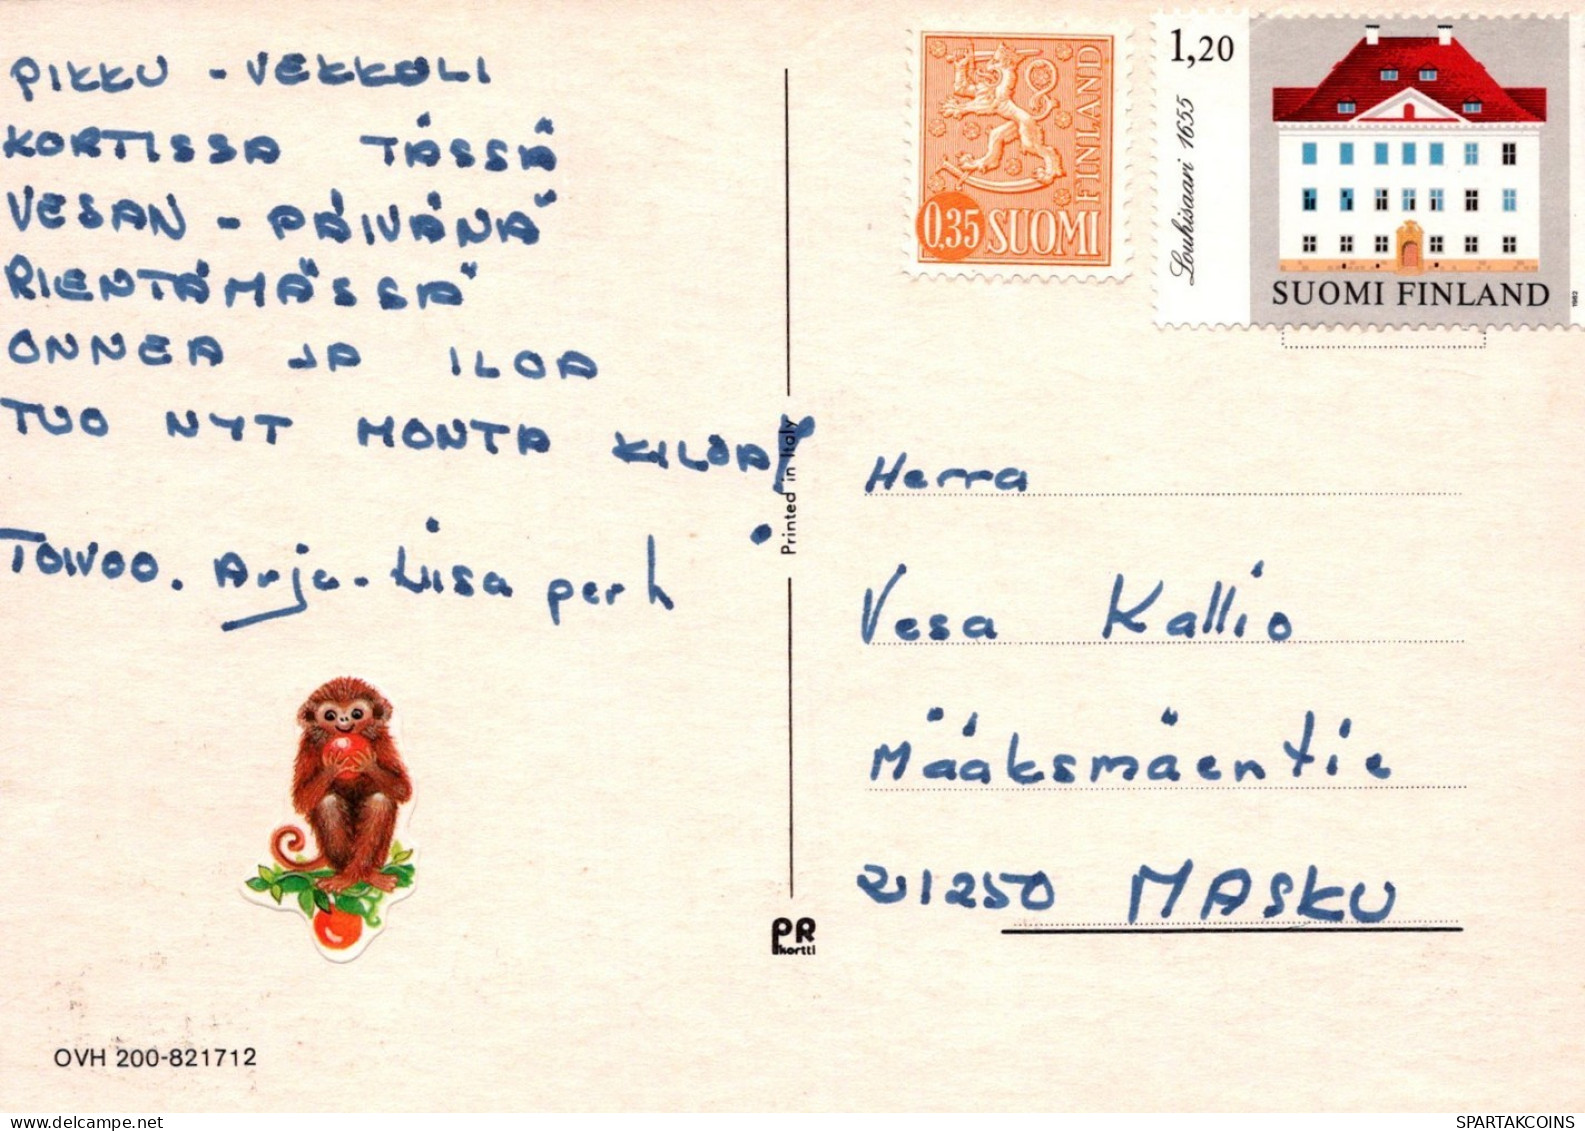 PIKKU - VEKKULI
KORTISSA TÄSSÄ
VESAN - PÄIVÄNÄ
RIENTÄMÄSSÄ
ONNEA JA ILOA
TUO NYT MONTA KILOA!
TOIVOO. Arja-Liisa perh
OVH 200-821712
Printed in Italy
PR
kortti
0,35 SUOMI
FINLAND
1,20
Louhisaari 1655
SUOMI FINLAND
1982
Herra
Vesa Kallio
Määksmäentie
21250 MASKU
SPARTAKCOINS